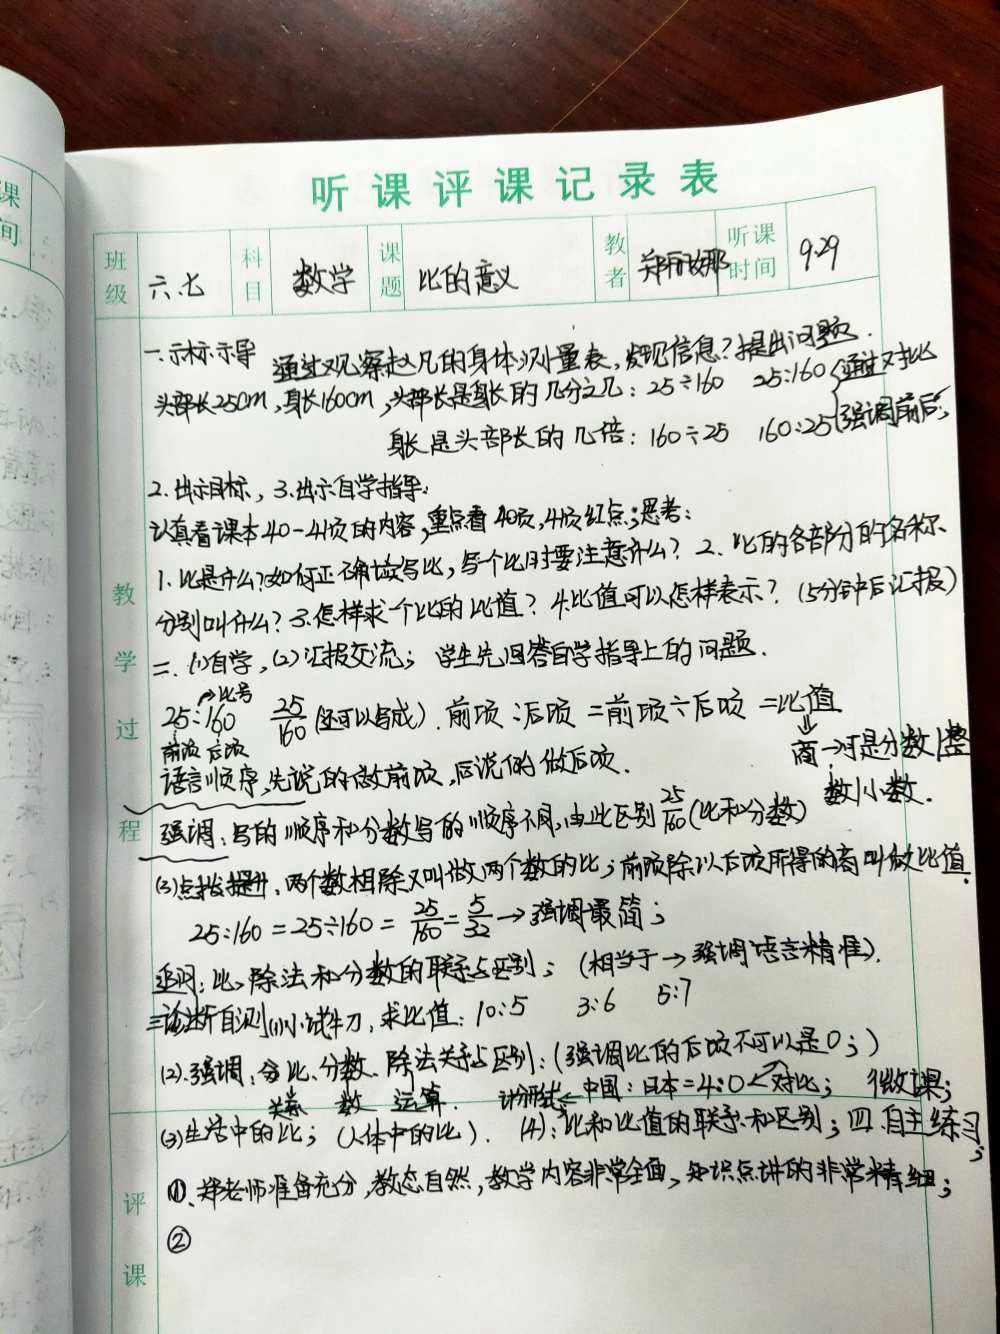 听课评课记录表
班级 六.七 科目 数学 课题 比的意义 教者 郑丽娜 听课时间 9.29
一.示标示导 通过观察赵凡的身体测量表,发现信息?提出问题.
头部长25cm,身长160cm,头部长是身长的几分之几:25÷160 25:160 通过对比
身长是头部长的几倍:160÷25 160:25 强调前后;
2.出示目标,3.出示自学指导:
认真看课本40-41页的内容,重点看40页,41页红点;思考:
1.比是什么?如何正确读写比,写个比时要注意什么? 2.比的各部分的名称
分别叫什么?3.怎样求一个比的比值?4.比值可以怎样表示?(5分钟后汇报)
二.(1)自学,(2)汇报交流; 学生先回答自学指导上的问题.
→比号
25:160 25/160 (还可以写成). 前项:后项=前项÷后项=比值
前项 后项 ⇓
商→可是分数|整
语言顺序,先说的做前项,后说的做后项. 数|小数.
强调:写的顺序和分数写的顺序不同,由此区别25/160(比和分数)
(3)点拨提升.两个数相除又叫做两个数的比;前项除以后项所得的商叫做比值.
25:160=25÷160=25/160=5/32→强调最简;
追问:比、除法和分数的联系与区别; (相当于→强调语言精准).
三诊断自测(1)小试牛刀,求比值:10:5 3:6 5:7
(2).强调:比、分数、除法关系与区别:(强调比的后项不可以是0;)
关系 数 运算. 计分形式←中国:日本=4:0<对比; 微课;
(3)生活中的比;(人体中的比). (4):比和比值的联系和区别;四.自主练习;
教学过程
①.郑老师准备充分,教态自然,教学内容非常全面,知识点讲的非常精细;
②
评课
课
间